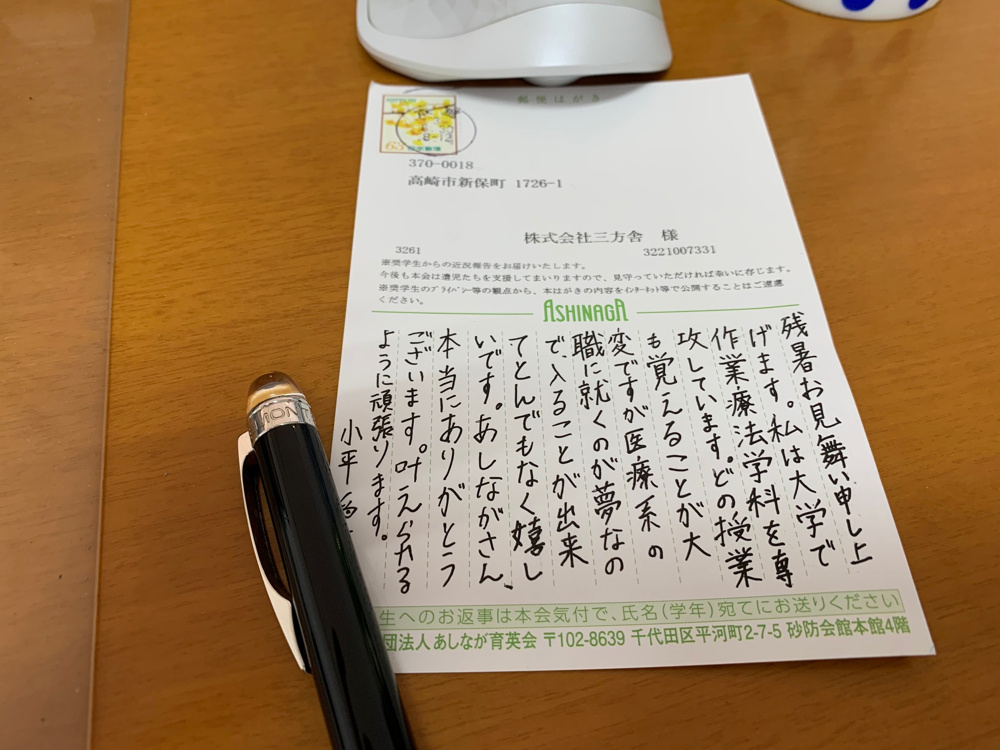 郵便はがき
63
日本郵便
8-12
370-0018
高崎市新保町 1726-1
株式会社三方舎 様
3261
3221007331
※奨学生からの近況報告をお届けいたします。
今後も本会は遺児たちを支援してまいりますので、見守っていただければ幸いに存じます。
※奨学生のプライバシー等の観点から、本はがきの内容をインターネット等で公開することはご遠慮
ください。
ASHINAGA
残暑お見舞い申し上
げます。私は大学で
作業療法学科を専
攻しています。どの授業
も覚えることが大
変ですが医療系の
職に就くのが夢なの
で、入ることが出来
てとんでもなく嬉し
いです。あしながさん、
本当にありがとう
ございます。叶えられる
ように頑張ります。
小平
生へのお返事は本会気付で、氏名(学年)宛てにお送りください
団法人あしなが育英会 〒102-8639 千代田区平河町2-7-5 砂防会館本館4階
MON